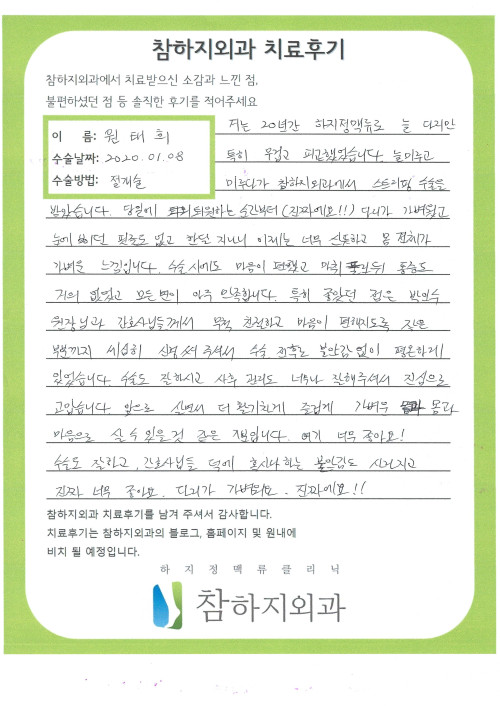 참하지외과 치료후기
참하지외과에서 치료받으신 소감과 느낀 점,
불편하셨던 점 등 솔직한 후기를 적어주세요
이 름: 원태희
수술날짜: 2020.01.08
수술방법: 절개술
저는 20년간 하지정맥류로 늘 다리만
특히 무겁고 피곤했었습니다. 늘 미루고
미루다가 참하지외과에서 스트리핑 수술을
받았습니다. 당일에 퇴원하는 순간부터 (진짜에요!!) 다리가 가벼웠고
눈에 띄던 핏줄도 없고 한달 지나니 이제는 너무 신통하고 몸 전체가
가벼운 느낌입니다. 수술시에도 마음이 편했고 마취 후 통증도
거의 없었고 모든 면이 아주 만족합니다. 특히 좋았던 점은
원장님과 간호사님들께서 무척 친절하고 마음이 편해지도록 작은
부분까지 세심히 신경 써 주셔서 수술 전후로 불안감 없이 평온하게
있었습니다. 수술도 잘하시고 사후 관리도 너무나 잘해주셔서 진심으로
고맙습니다. 앞으로 살면서 더 활기차게 즐겁게 가벼운 몸과
마음으로 살 수 있을 것 같은 예감입니다. 여기 너무 좋아요!
수술도 잘하고, 간호사님들 덕에 혹시나 하는 불안감도 사라지고
진짜 너무 좋아요. 다리가 가벼워요. 진짜에요!!
참하지외과 치료후기를 남겨 주셔서 감사합니다.
치료후기는 참하지외과의 블로그, 홈페이지 및 원내에
비치 될 예정입니다.
하지정맥류클리닉
참하지외과